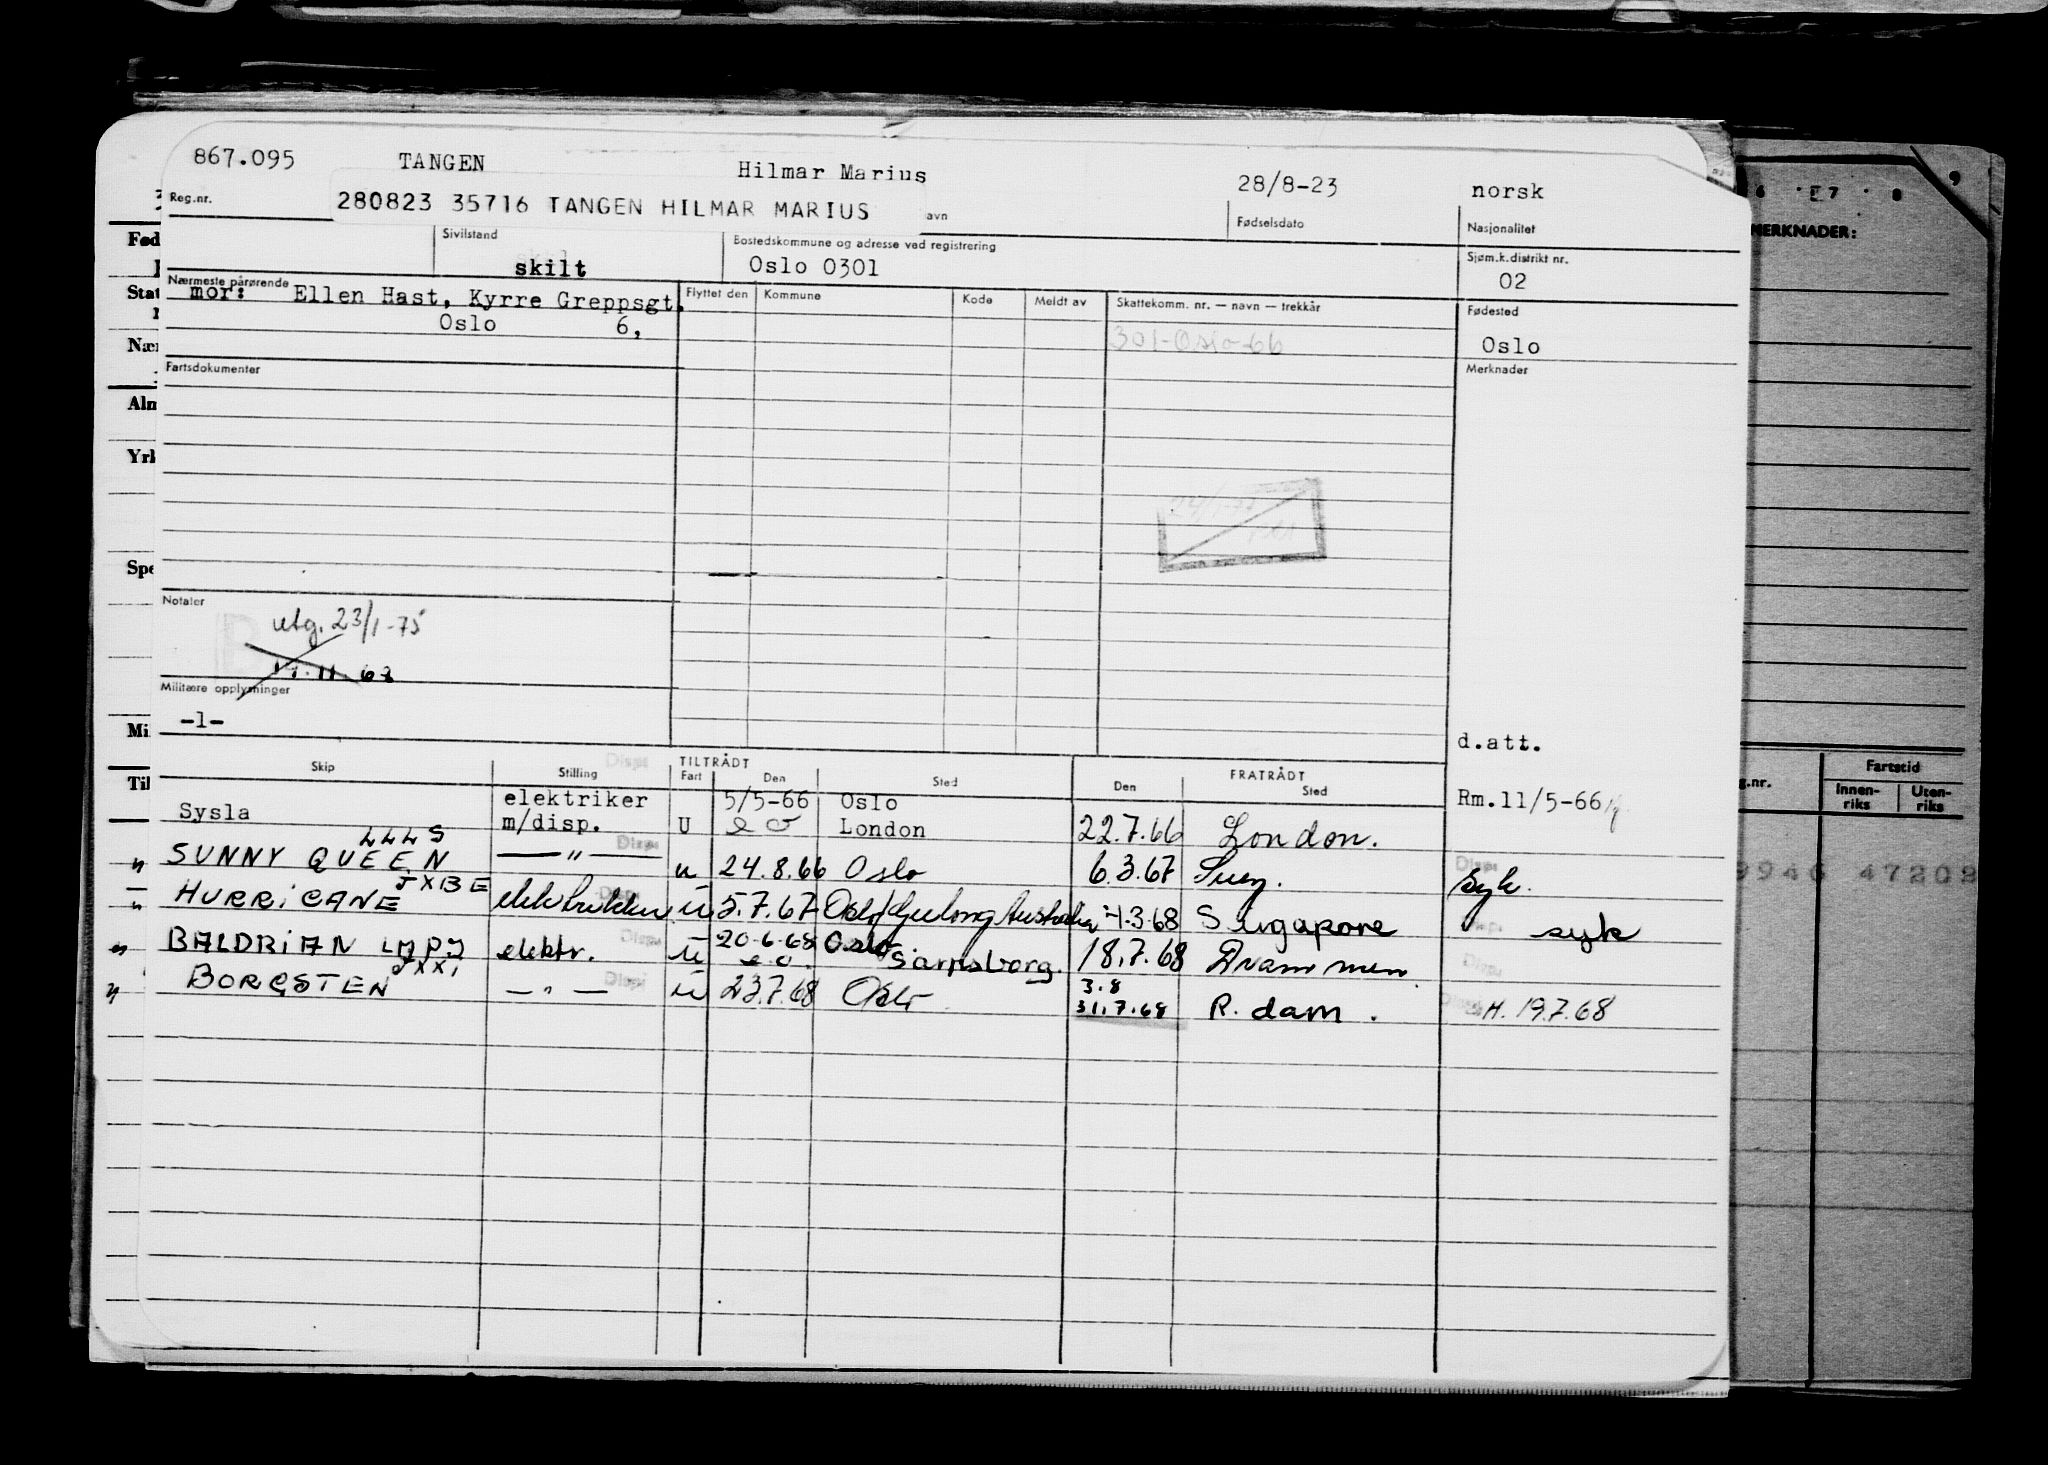 867.095 TANGEN Hilmar Marius 28/8-23 norsk
Reg.nr. 280823 35716 TANGEN HILMAR MARIUS avn Fødselsdato Nasjonalitet
Sivilstand Bostedskommune og adresse ved registrering Sjøm.k.distrikt nr.
skilt Oslo 0301 02
Nærmeste pårørende Flyttet den Kommune Kode Meldt av Skattekomm. nr. — navn — trekkår Fødested
mor: Ellen Hast, Kyrre Greppsgt.
Oslo 6,
301-Oslo-66
Oslo
Fartsdokumenter Merknader
Notater
utg. 23/1-75
Militære opplysninger
-1-
d.att.
Skip Stilling TILTRÅDT Fart Den Sted FRATRÅDT Den Sted
Sysla elektriker m/disp. U 5/5-66 Oslo London 22.7.66 London. Rm.11/5-66
LLLS
SUNNY QUEEN —"— u 24.8.66 Oslo 6.3.67 Suez. syk.
JXBE
HURRICANE u 5.7.67 3.68 Singapore syk
BALDRIAN LAPJ elektr. u 20.6.68 Oslo. Sarpsborg. 18.7.68 Drammen
JXXI
BORGSTEN —"— u 23.7.68 Oslo 3.8 31.7.68 R.dam. H. 19.7.68
Fød
Stat
Nær
Alm
Yrk
Spe
Mi
Til
6 7 8 9
MERKNADER:
g.nr. Fartstid
Innenriks Utenriks
9946 47202